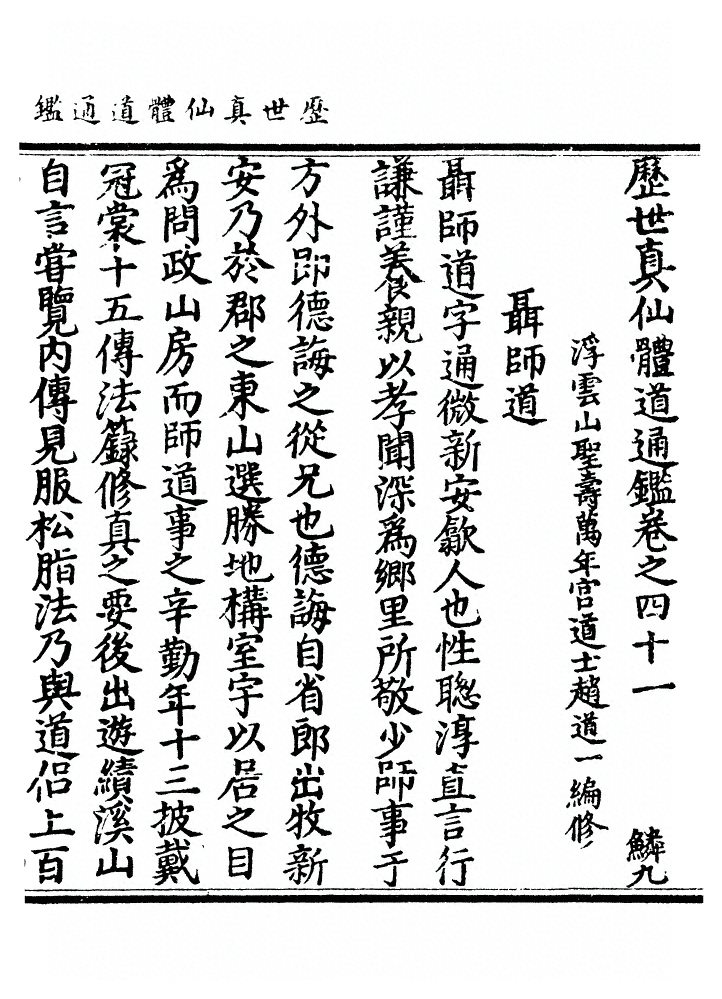 歷世真仙體道通鑑
歷世真仙體道通鑑卷之四十一 鱗九
浮雲山聖壽萬年宮道士趙道一編修
聶師道
聶師道字通微新安歙人也性聦淳直言行
謙謹養親以孝聞深爲鄉里所敬少師事于
方外即德誨之從兄也德誨自省郎出牧新
安乃於郡之東山選勝地構室宇以居之目
爲問政山房而師道事之辛勤年十三披戴
冠裳十五傳法籙修真之要後出遊績溪山
自言甞覽內傳見服松脂法乃與道侣上百